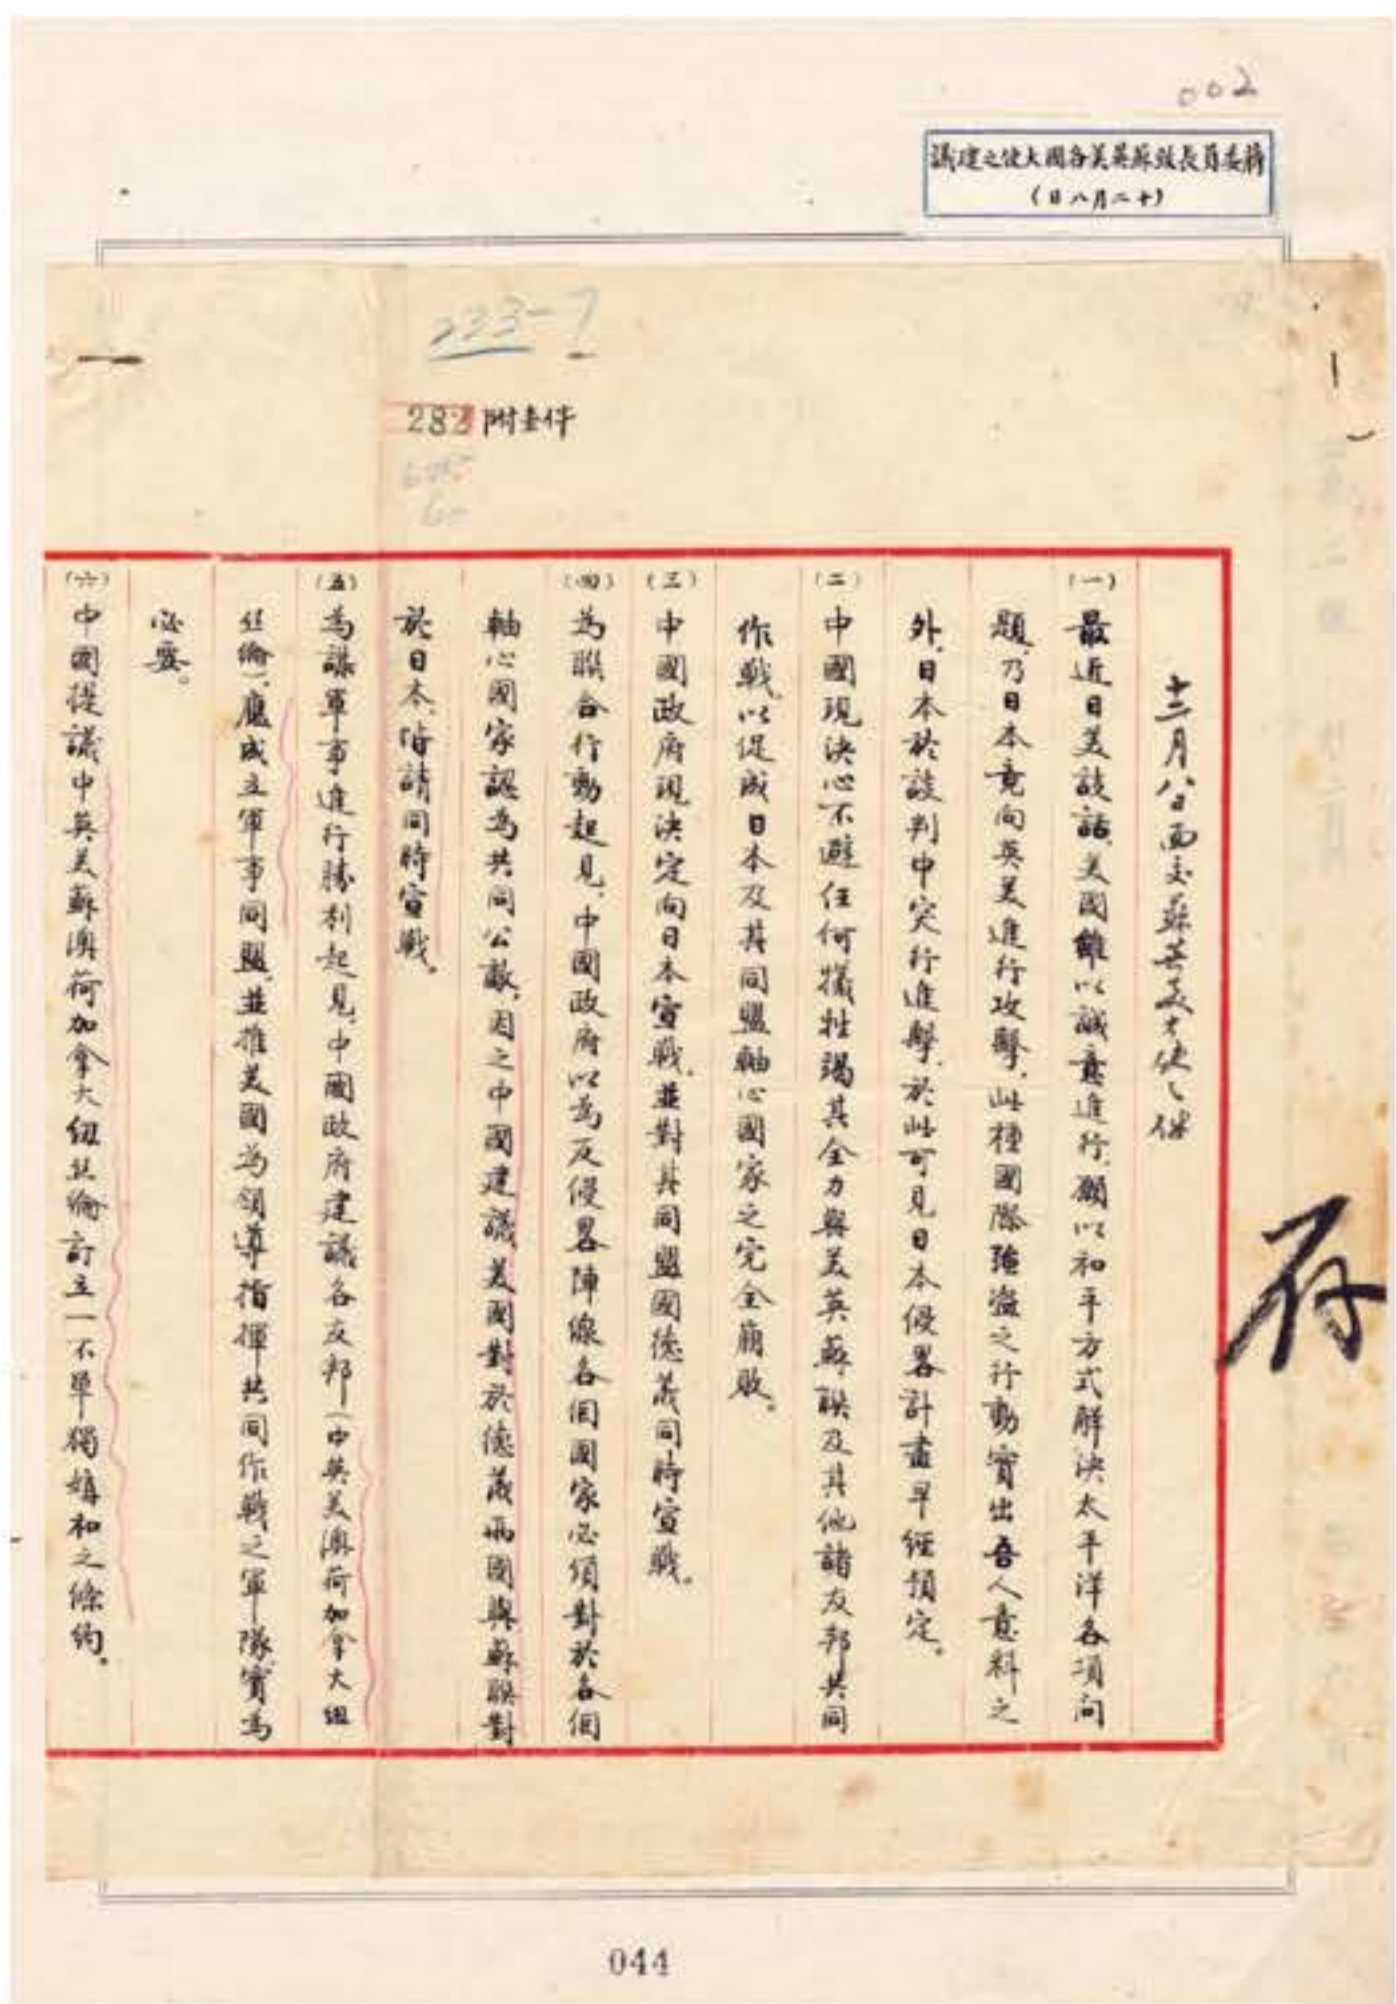 002
蔣委員長致蘇英美各國大使之建議
(十二月八日)
233-7
282 附壹件
十二月八日面交蘇英美大使之件
存
(一)最近日美談話,美國雖以誠意進行,願以和平方式解決太平洋各項問
題,乃日本竟向英美進行攻擊,此種國際強盜之行動實出吾人意料之
外,日本於談判中突行進擊,於此可見日本侵畧計畫早經預定。
(二)中國現決心不避任何犧牲竭其全力與美英蘇聯及其他諸友邦共同
作戰,以促成日本及其同盟軸心國家之完全崩敗。
(三)中國政府現決定向日本宣戰,並對其同盟國德義同時宣戰。
(四)為聯合行動起見,中國政府以為反侵畧陣線各個國家必須對於各個
軸心國家認為共同公敵,因之中國建議美國對於德義兩國與蘇聯對
於日本,皆請同時宣戰。
(五)為謀軍事進行勝利起見,中國政府建議各友邦(中英美澳荷加拿大紐
丝倫),應成立軍事同盟,並推美國為領導指揮共同作戰之軍隊,實為
必要。
(六)中國提議中英美蘇澳荷加拿大紐丝倫訂立一不單獨媾和之條約。
044